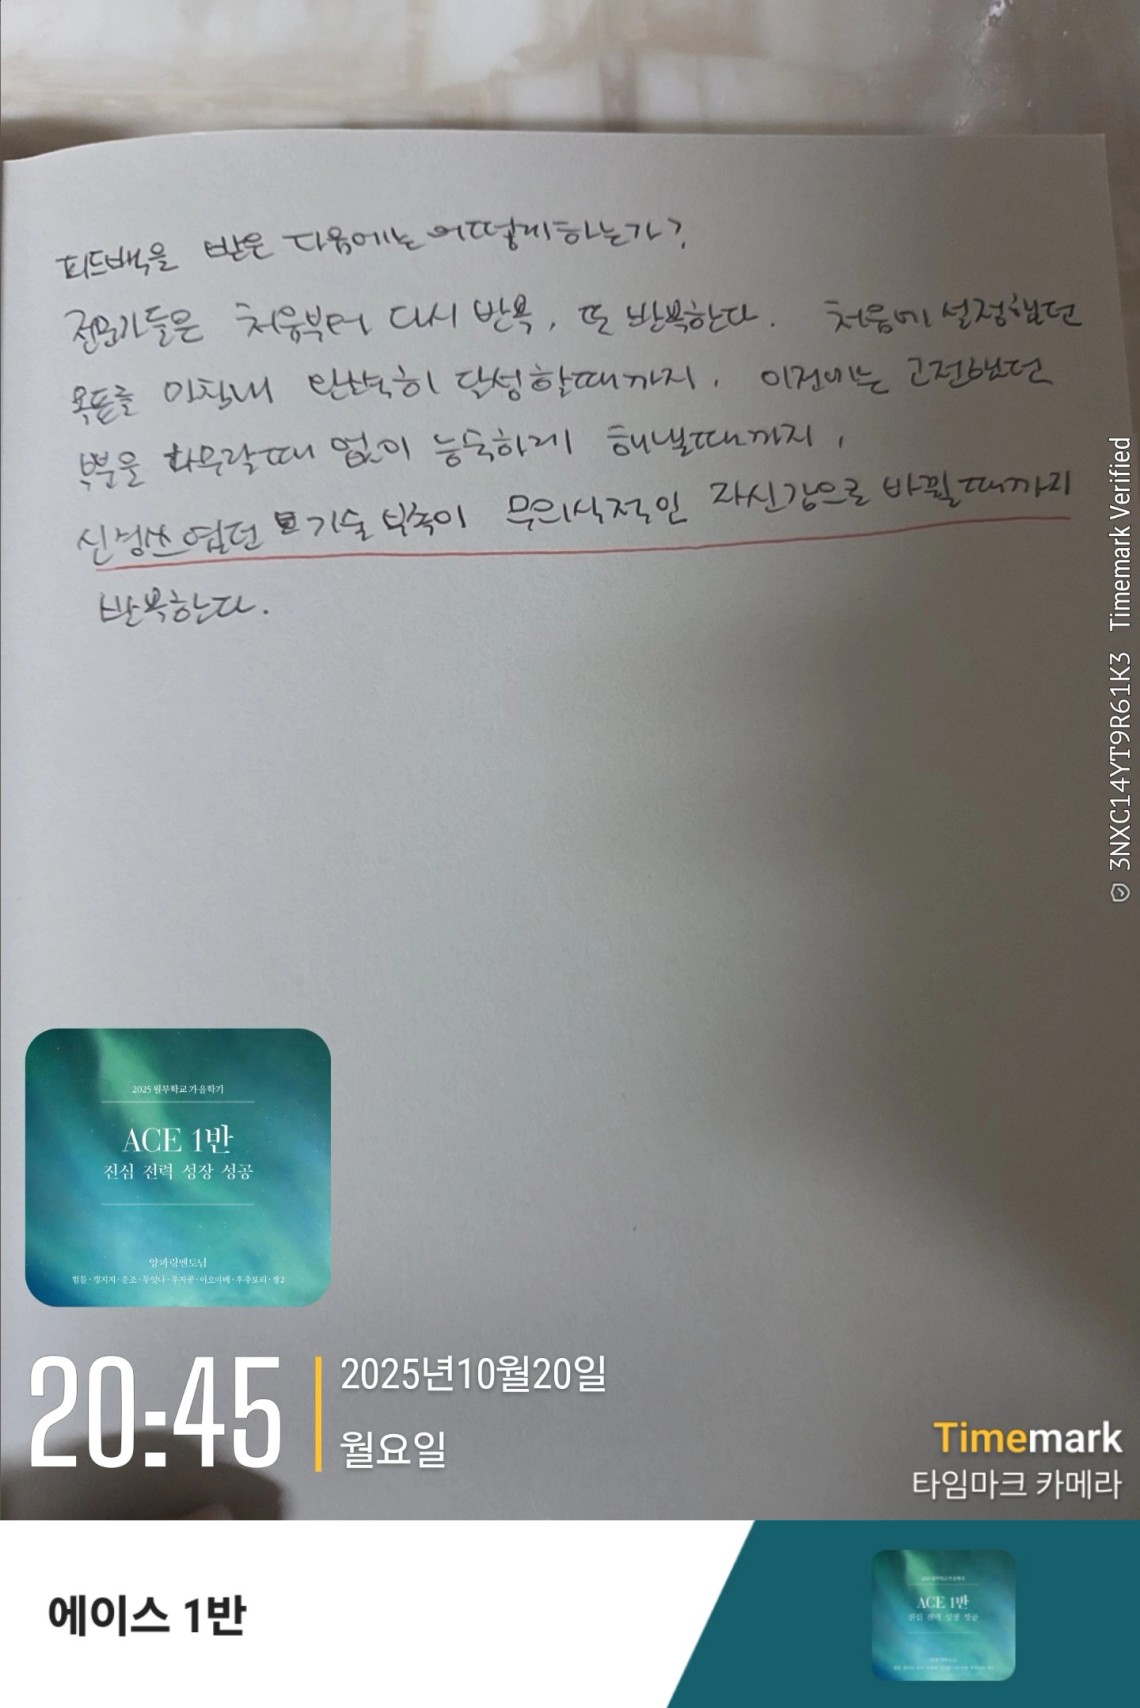 피드백을 받은 다음에는 어떻게 하는가?
전문가들은 처음부터 다시 반복, 또 반복한다. 처음에 설정했던
목표를 마침내 완벽히 달성할때까지. 이전에는 고전했던
부분을 나무랄때 없이 능숙하게 해낼때까지,
신경쓰였던 기술 부족이 무의식적인 자신감으로 바뀔때까지
반복한다.
3NXC14YT9R61K3 Timemark Verified
2025 월부학교 가을학기
ACE 1반
진심 전력 성장 성공
양파링멘토님
20:45
2025년10월20일
월요일
Timemark
타임마크 카메라
에이스 1반
ACE 1반
진심 전력 성장 성공